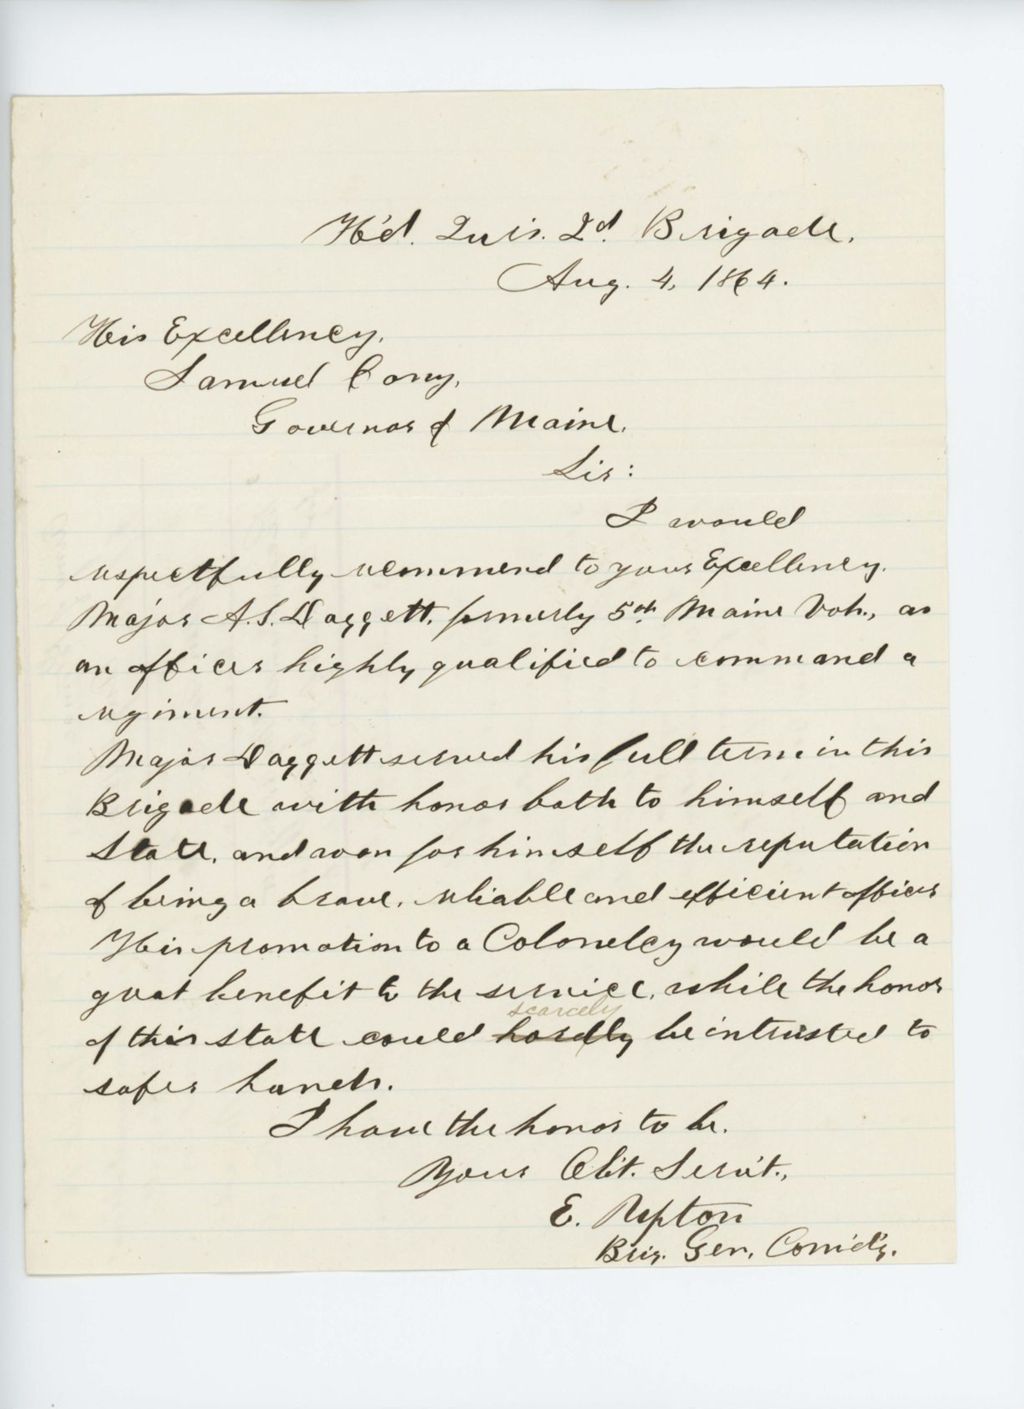 H'd. Qurs. 2d. Brigade,
Aug. 4, 1864.
His Excellency,
Samuel Cony,
Governor of Maine.
Sir:
I would
respectfully recommend to your Excellency.
Major A.S. Daggett, formerly 5th Maine Vols., as
an officer highly qualified to command a
regiment.
Major Daggett served his full term in this
Brigade with honor both to himself and
State, and won for himself the reputation
of being a brave, reliable and efficient officer
His promotion to a Colonelcy would be a
great benefit to the service, while the honor
scarcely
of this state could hardly be intrusted to
safer hands.
I have the honor to be.
Your Obt. Serv't.,
E. Upton
Brig. Gen. Com'd'g.